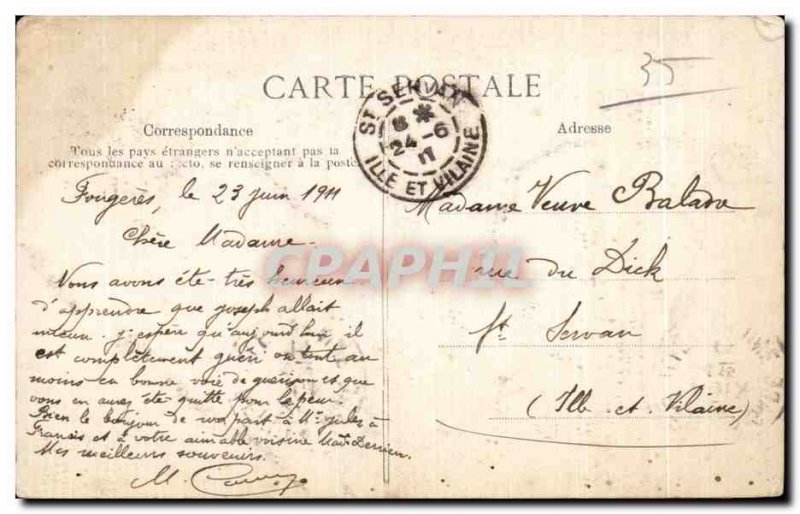 35
CARTE POSTALE
Correspondance
Tous les pays étrangers n'acceptent pas la
correspondance au recto, se renseigner à la poste
Fougères, le 23 juin 1911
Chère Madame.
Nous avons été très heureux
d'apprendre que Joseph allait
mieux. J'espère qu'aujourd'hui il
est complètement guéri ou tout au
moins en bonne voie de guérison et que
vous en aurez été quitte pour la peur.
Bien le bonjour de ma part à Mr Jules à
Francis et à votre aimable voisine Made
Mes meilleurs souvenirs.
M.
ST SERVAN
8 *
24 - 6
11
ILLE ET VILAINE
Adresse
Madame Veuve
rue du Dick
St Servan
(Ille-et-Vilaine)
CPAPHIL